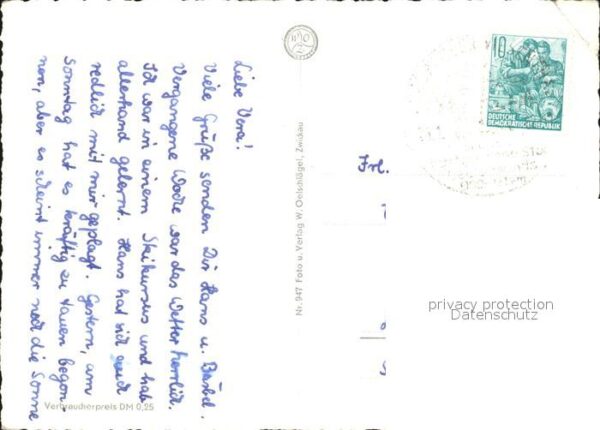 Liebe Vera!
Viele Grüße senden Dir Hans u. Bärbel.
Vergangene Woche war das Wetter herrlich.
Ich war in einem Skikursus und hab
allerhand gelernt. Hans hat sich auch
redlich mit mir geplagt. Gestern, am
Sonntag hat es kräftig zu tauen begon-
nen, aber es scheint immer noch die Sonne
Verbraucherpreis DM 0,25
Nr. 947 Foto u. Verlag W. Oelschlägel, Zwickau
10
DEUTSCHE
DEMOKRATISCHE REPUBLIK
Frl.
privacy protection
Datenschutz